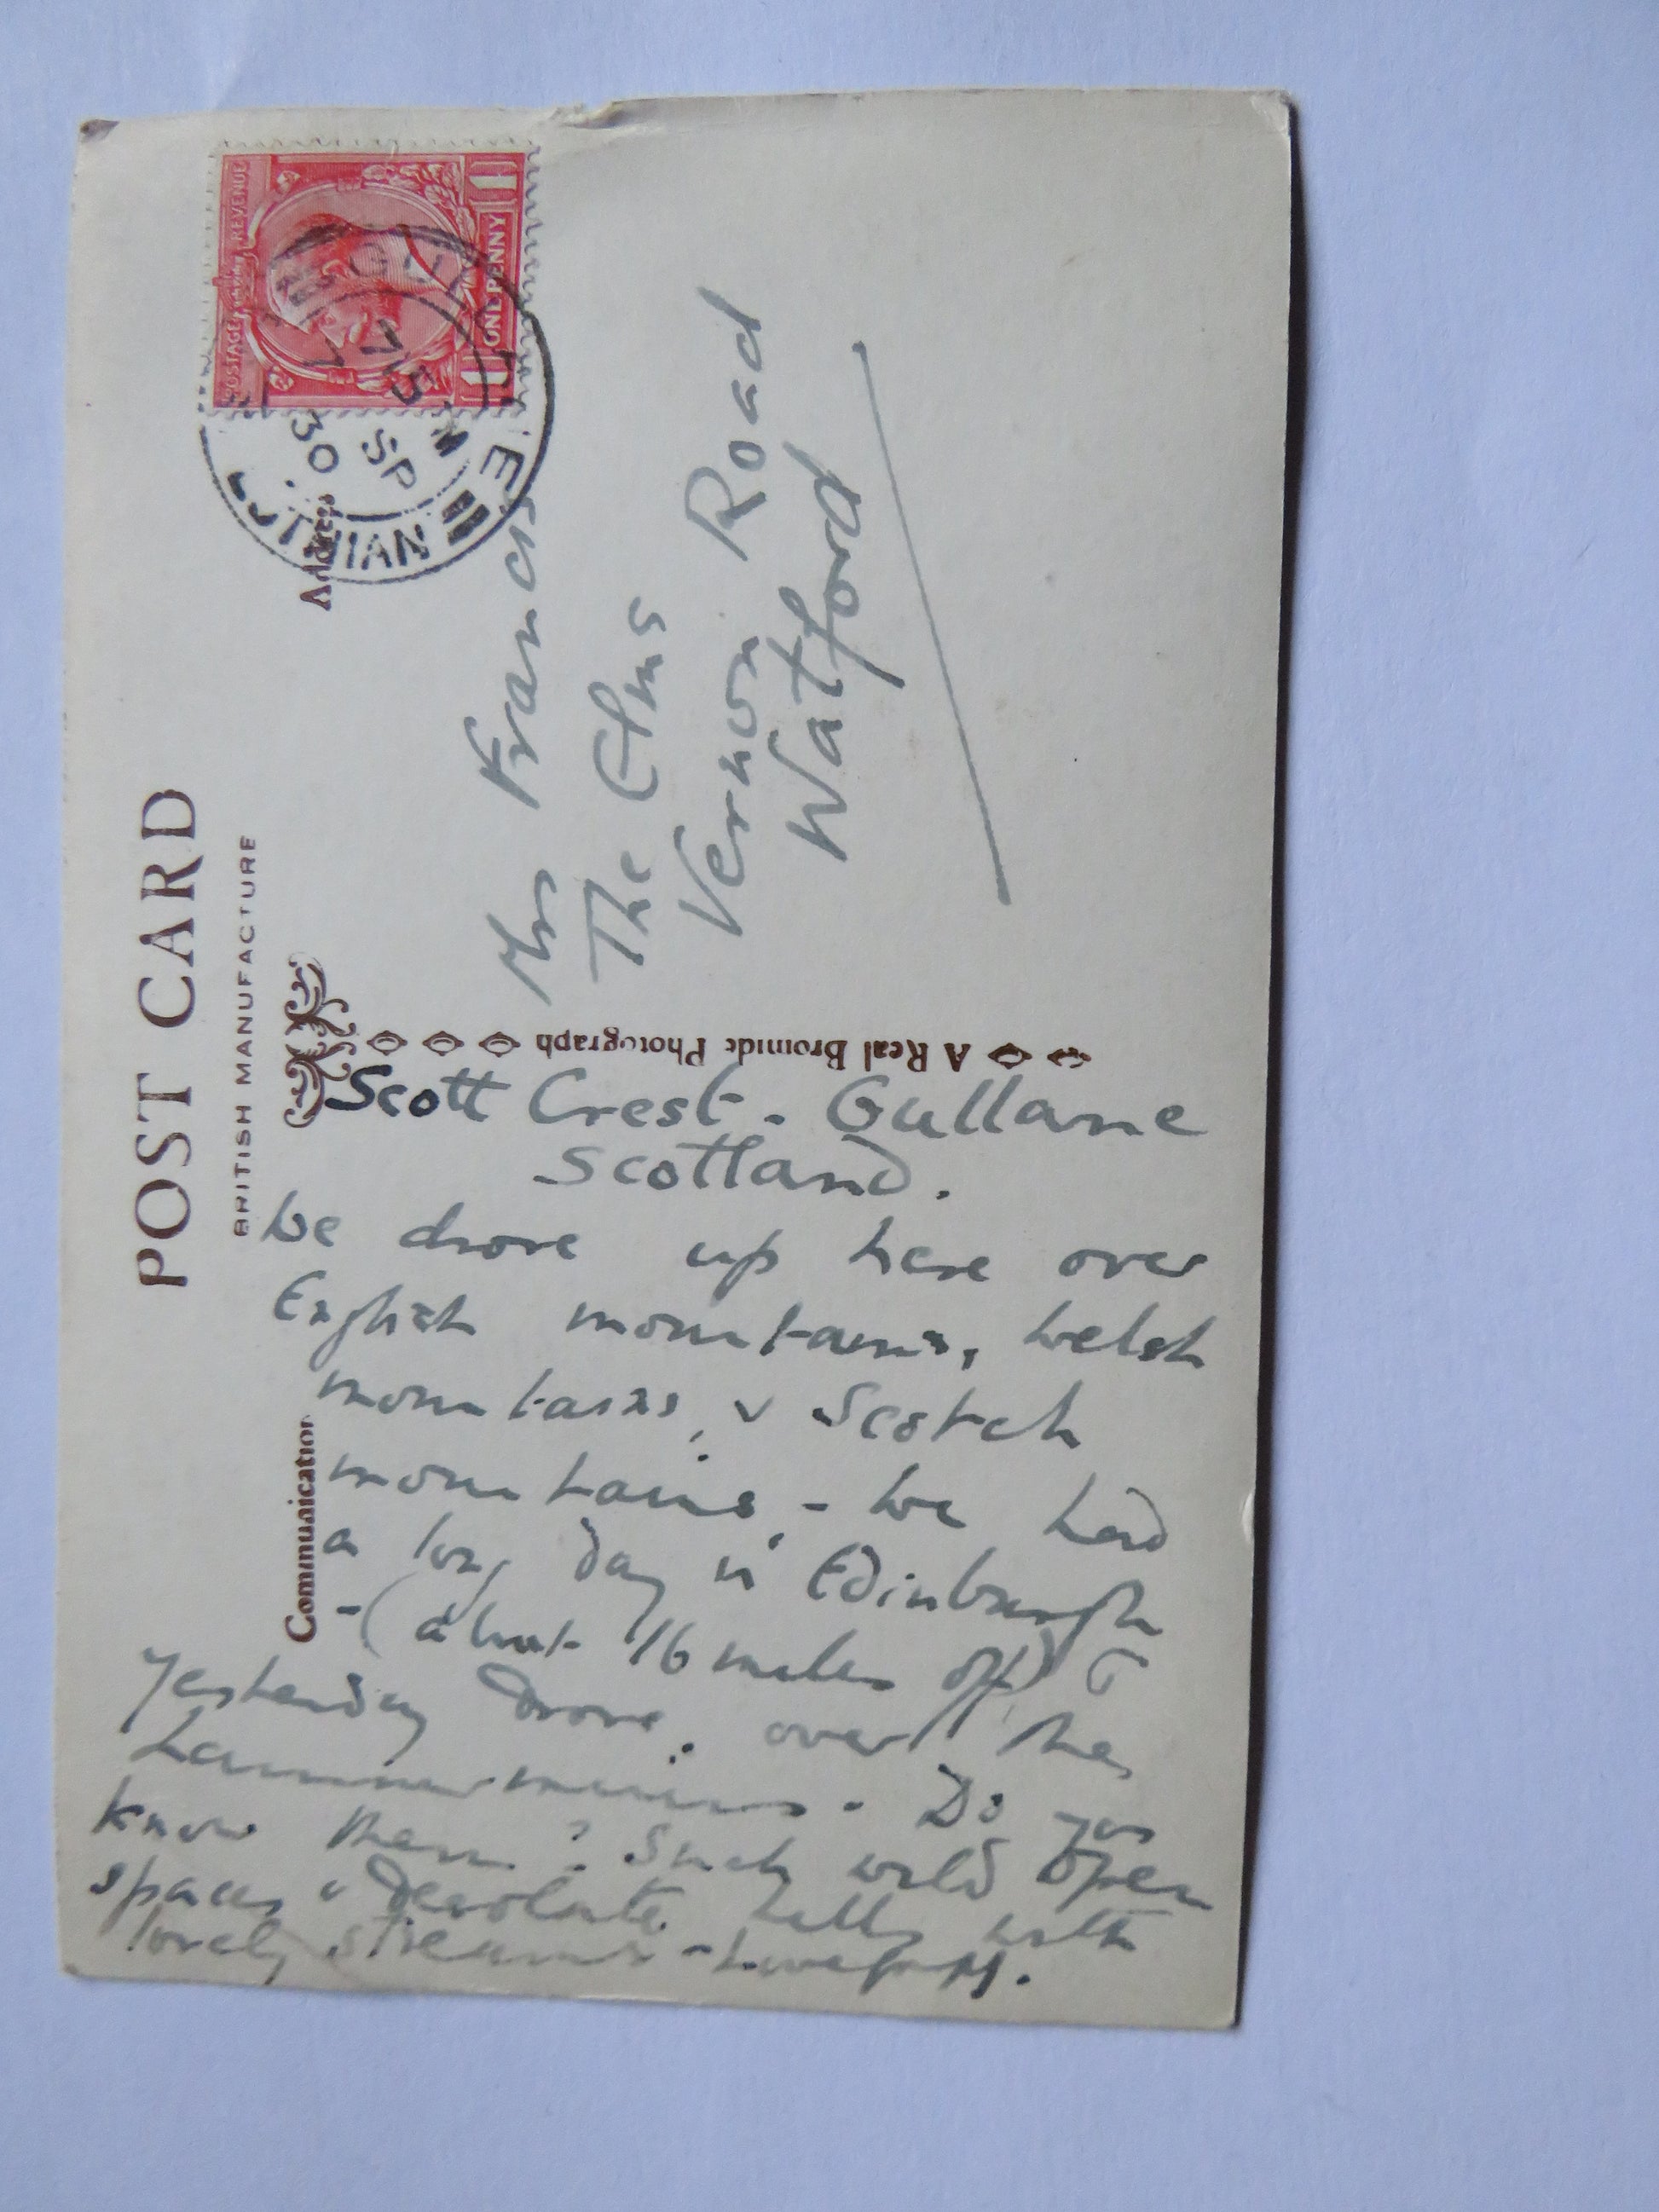 POST CARD
BRITISH MANUFACTURE
Address
POSTAGE REVENUE
1 ONE PENNY 1
GULLANE
7 15 PM
7 SP
30
LOTHIAN
Mrs Francis
The Elms
Vernon Road
Watford
A Real Bromide Photograph
Communication
Scott Crest - Gullane
Scotland.
We drove up here over
English mountains, Welsh
mountains, & Scotch
mountains, - We had
a long day in Edinburgh
-(about 16 miles off) &
yesterday drove over the
Lammermuirs. Do you
know them? Such wild open
spaces & desolate hills with
lovely streams - Love from